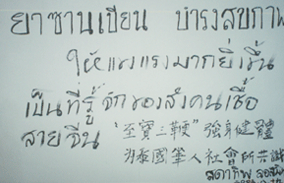 ยาซานเปียน บำรุงสุขภาพ
ให้แข็งแรงมากยิ่งขึ้น
เป็นที่รู้จักของสังคนเชื้อ
สายจีน "至寶三鞭" 強身健體
為泰國華人社會所共
สุดาทิพ